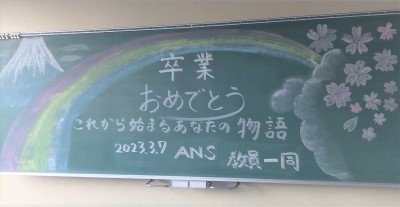 卒業
おめでとう
これから始まるあなたの物語
2023.3.7 ANS 教員一同